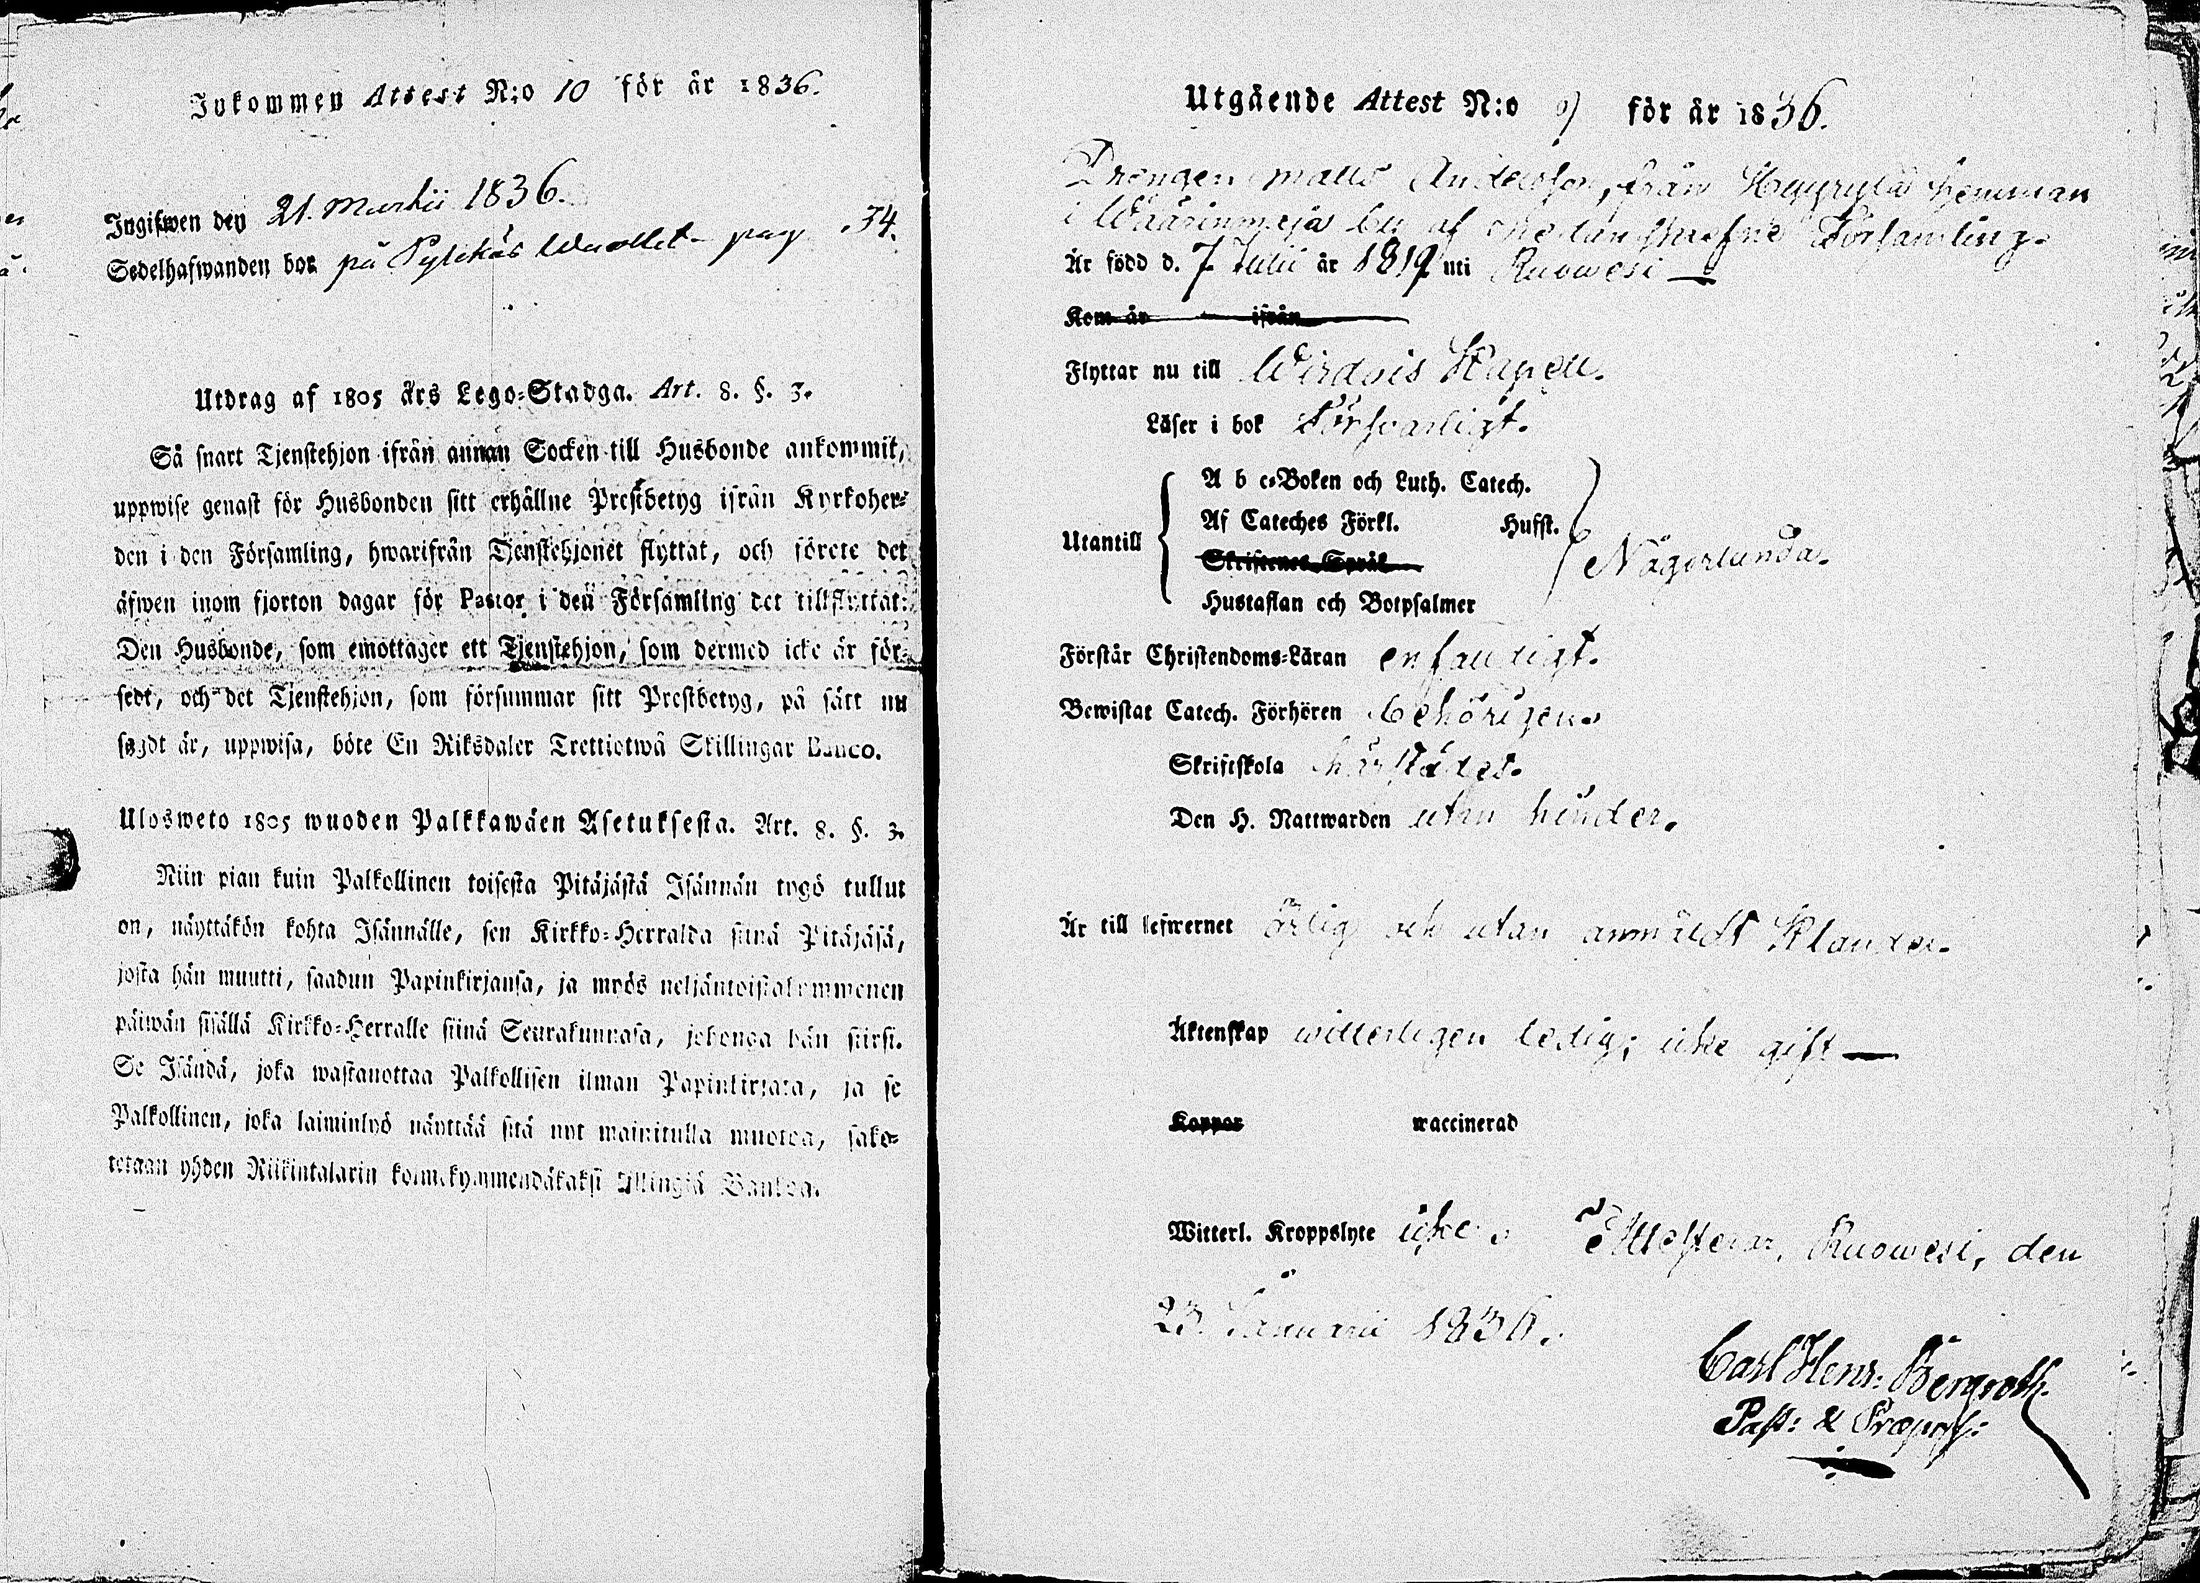 Inkommen Attest N:o 10 för år 1836.
Ingifwen den 21. Martii 1836.
Sedelhafwanden bor på Pylkäs pag 34.
Utdrag af 1805 års Lego-Stadga. Art. 8. §. 3.
Så snart Tjenstehjon ifrån annan Socken till Husbonde ankommit,
uppwise genast för Husbonden sitt erhållne Prestbetyg ifrån Kyrkoher-
den i den Församling, hwarifrån Tjenstehjonet flyttat, och förete det
äfwen inom fjorton dagar för Pastor i den Församling det tillflyttat:
Den Husbonde, som emottager ett Tjenstehjon, som dermed icke är för-
sedt, och det Tjenstehjon, som försummar sitt Prestbetyg, på sätt nu
sagdt är, uppwisa, böte En Riksdaler Trettiotwå Skillingar Banco.
Ulosweto 1805 wuoden Palkkawäen Asetuksesta. Art. 8. §. 3.
Niin pian kuin Palkollinen toisesta Pitäjästä Isännän tygö tullut
on, näyttäkön kohta Isännälle, sen Kirkko-Herralda siinä Pitäjäsä,
josta hän muutti, saadun Papinkirjansa, ja myös neljäntoistakymmenen
päiwän sisällä Kirkko-Herralle siinä Seurakunnasa, johonga hän siirsi.
Se Isändä, joka wastanottaa Palkollisen ilman Papinkirjata, ja se
Palkollinen, joka laiminlyö näyttää sitä nyt mainitulla muotoa, sako-
tetaan yhden Riikintalarin kolmekymmendäkaksi killingiä Bankoa.
Utgående Attest N:o 9 för år 1836.
Drengen Matts Andersson, från Hemman
i Wäärinmaja by af nedanskrefne Församling.
Är född d. 7 Julii år 1819 uti Ruowesi
Kom år ifrån
Flyttar nu till Wirdois Kapell.
Läser i bok Försvarligt.
A b c-Boken och Luth. Catech.
Af Cateches Förkl. Hufst.
Utantill Någorlunda.
Skriftenes Språk
Hustaflan och Botpsalmer
Förstår Christendoms-Läran enfaldigt.
Bewistat Catech. Förhören behörigen.
Skriftskola härstädes.
Den H. Nattwarden utan hinder.
Är till lefwernet ärlig och utan anmäldt Klander.
Äktenskap witterligen ledig; icke gift
Koppor waccinerad
Witterl. Kroppslyte icke. Attesterar, Ruowesi, den
23. Januarii 1836.
Carl Henr: Bergroth.
Past: & Præpos: